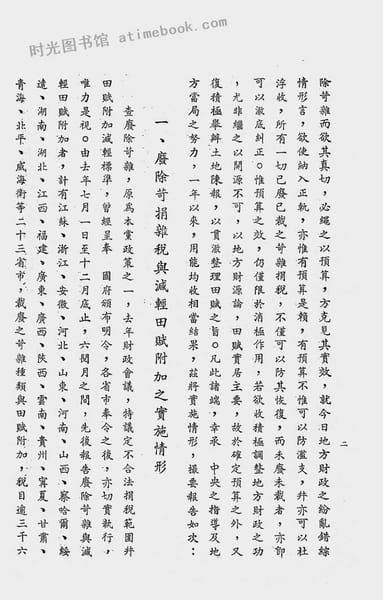 时光图书馆 atimebook.com
二
除苛雜而欲其真切，必繩之以預算，方克見其實效，就今日地方財政之紛亂錯綜
情形言，欲使納入正軌，亦惟有預算是賴，有預算不惟可以防濫支，幷亦可以杜
浮收，所有一切已廢已裁之苛雜捐稅，不僅可以防其恢復，而未廢未裁者，亦卽
可以澈底糾正○惟預算之效，仍僅限於消極作用，若欲收積極調整地方財政之功
，尤非繼之以開源不可，以地方財源論，田賦實居主要，故於確定預算之外，又
復積極舉辦土地陳報，以貫澈整理田賦之旨○凡此諸端，幸承　中央之指導及地
方當局之努力，一年以來，用能均收相當結果，茲將實施情形，撮要報告如次：
一、廢除苛捐雜稅與減輕田賦附加之實施情形
查廢除苛雜，原爲本黨政策之一，去年財政會議，特議定不合法捐稅範圍幷
田賦附加減輕標準，曾經呈奉　國府頒布明令，各省市奉令之後，亦切實執行，
唯力是視○由去年七月一日至十二月底止，六閱月之間，先後報告廢除苛雜與減
輕田賦附加者，計有江蘇、浙江、安徽、河北、山東、河南、山西、察哈爾、綏
遠、湖南、湖北、江西、福建、廣東、廣西、陝西、雲南、貴州、寧夏、甘肅、
靑海、北平、威海衛等二十三省市，裁廢之苛雜種類與田賦附加，稅目逾三千六